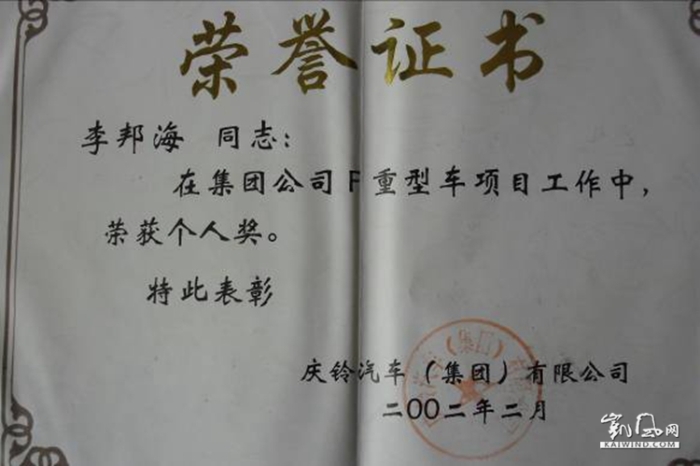 荣誉证书
李邦海 同志：
在集团公司F重型车项目工作中，
荣获个人奖。
特此表彰
庆铃汽车（集团）有限公司
二00二年二月
凯风网
KAIWIND.COM